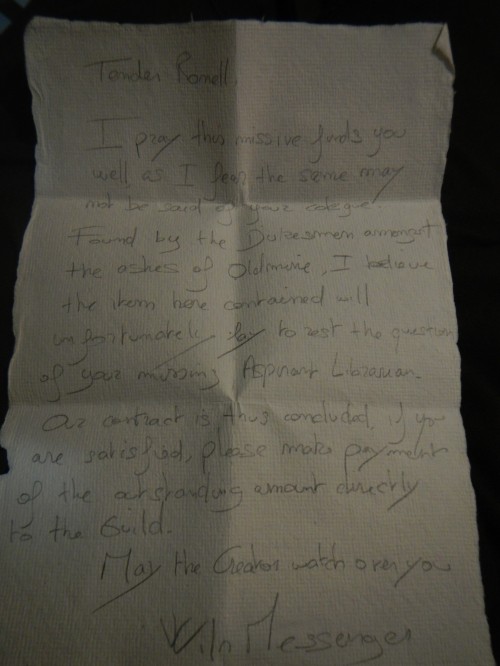 Tender Ronell,
I pray this missive finds you
well as I fear the same may
not be said of your collegue.
Found by the Dutiesmen amongst
the ashes of Oldmine, I believe
the item here contained will
unfortunately lay to rest the question
of your missing Aspirant Librarian.
Our contract is thus concluded, if you
are satisfied, please make payment
of the outstanding amount directly
to the Guild.
May the Creator watch over you
Messenger